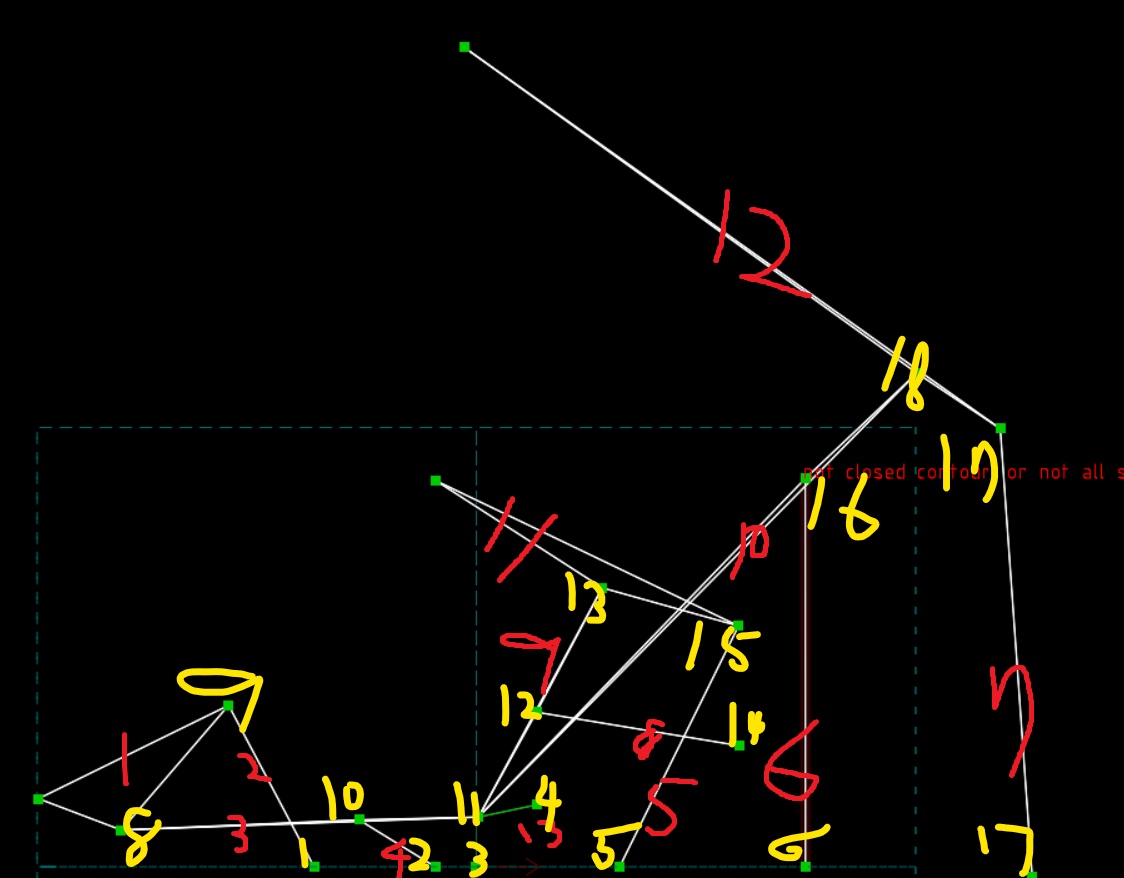 12
18
17
not closed contour or not all s
16
11
10
13
15
9
12
14
8
9
7
1
2
6
5
10
11
4
13
8
3
4
2
3
1
5
6
17